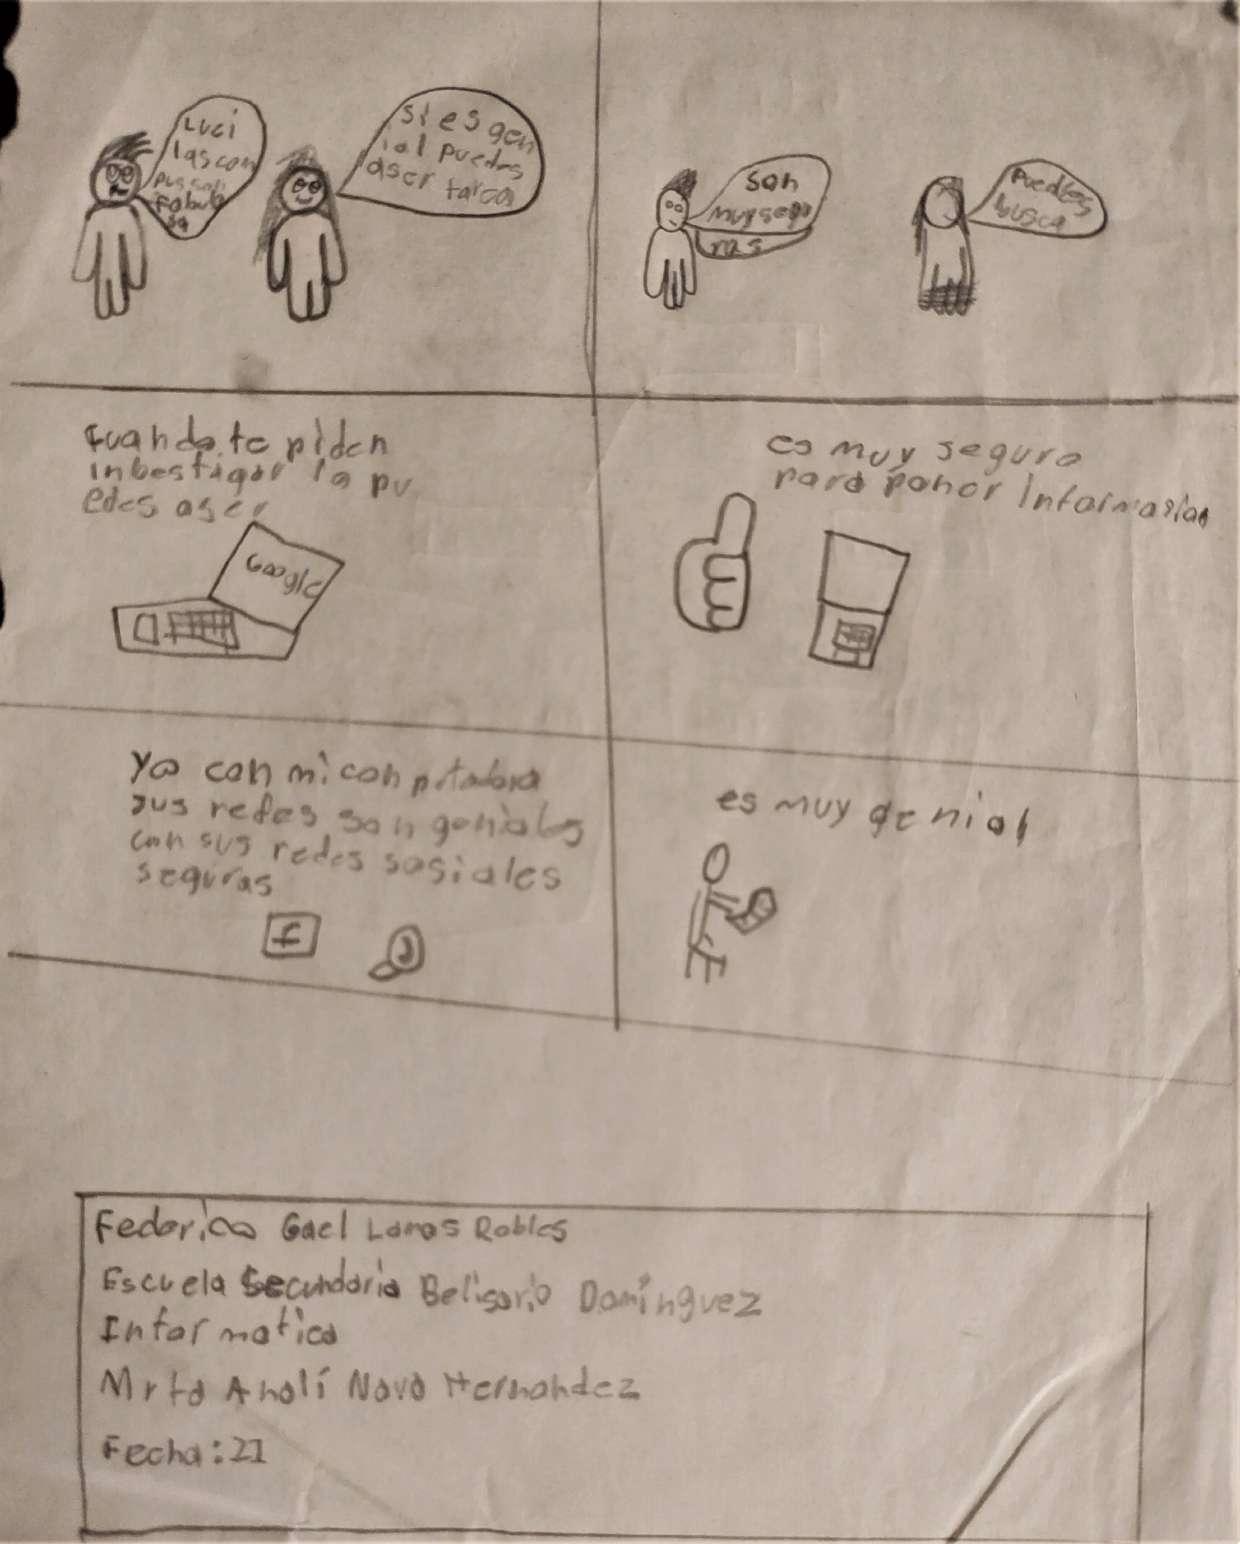 Luci
las con
fabulo
sa
si es gen
ial puedes
aser tarea
son
muy segu
ras
puedes
busca
Cuando te piden
inbestigar la pu
edes aser
Google
es muy seguro
para poner informasion
Yo con mi conputadora
sus redes son geniales
con sus redes sosiales
seguras
f
es muy genial
Federico Gael Lamos Robles
Escuela Secundaria Belisario Domínguez
Informatica
Mrta Analí Nava Hernandez
Fecha: 21